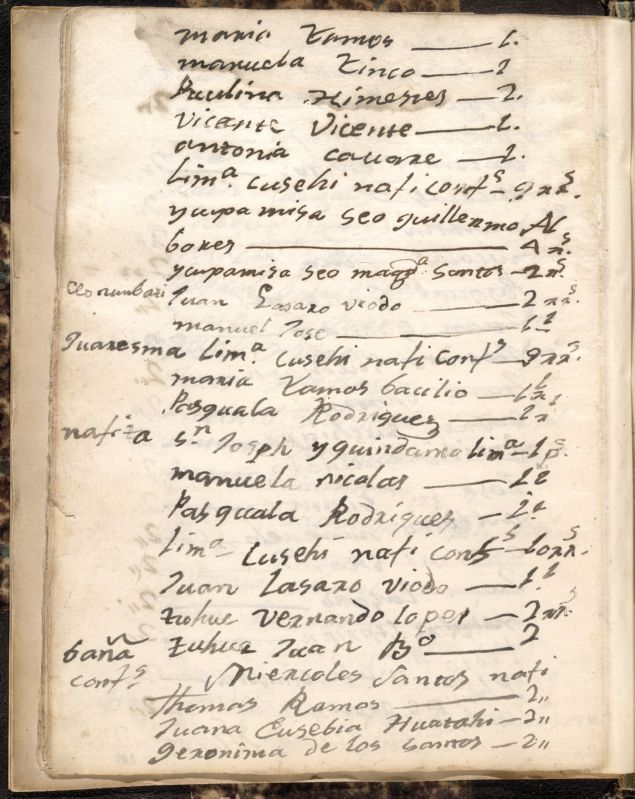 maria Ramos — 1.
manuela Zinco — 1
Paulina Ximenes — 2.
Vicente Vicente — 1.
antonia cauare — 1.
Lim.a cusehi nati conf.s — 9 rr.s
yurpamisa seo guillermo Al
bores — 4 r.s
yurpamisa seo magd.a santos — 2 r.s
Juan Lasaro viodo — 2 rr.s
manuel Jose — 1 2
quaresma Lim.a cusehi nati conf.s — 9 rr.s
maria Ramos bacilio — 1
Pasquala Rodriguez — 1
natiza s.n Joseph yquindamo lim.a — 1 p.s
manuela nicolas — 1 2
Pasquala Rodrigues — 1 2
Lim.a Cusehi nati conf.s — 10 rr.s
Juan Lasaro viodo — 1 2
tuhue vernando lopes — 2 rr.s
tuhue Juan B.to — 2
bañã
conf.s Miercoles Santos nati
Thomas Ramos — 2,,
Juana Eusebia Huatahi — 2,,
Geronima de los santos — 2,,